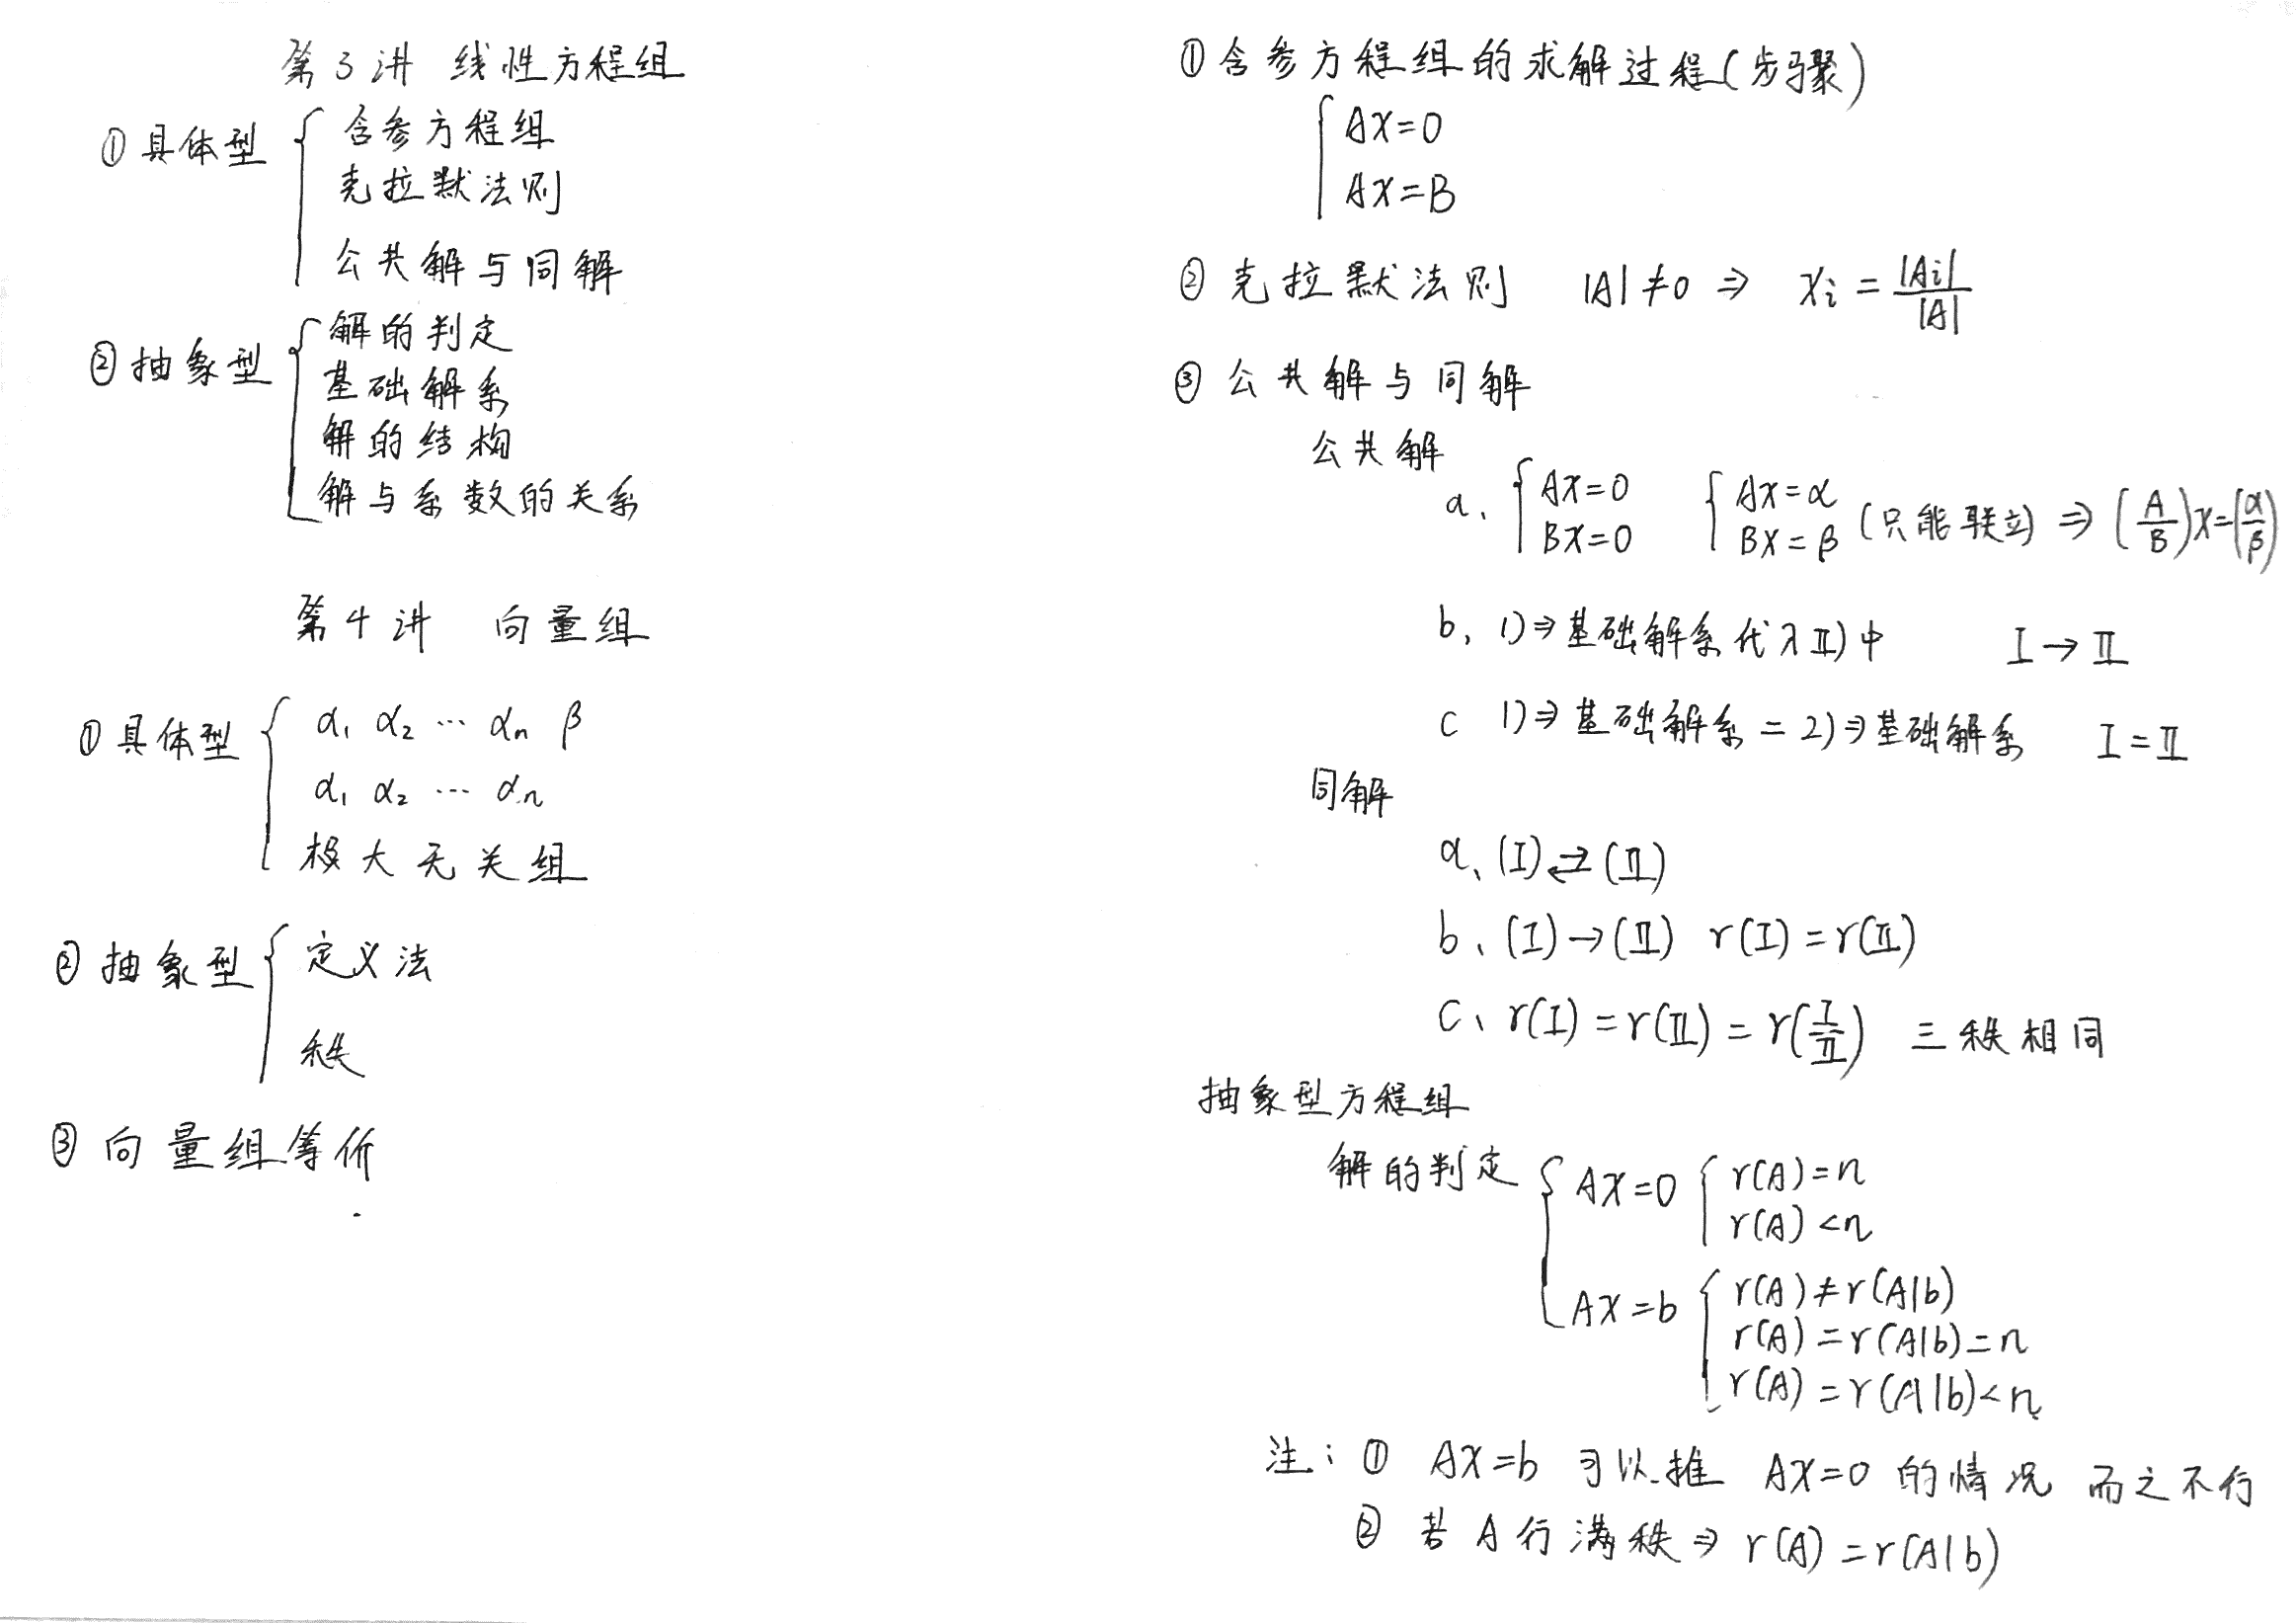 第3讲 线性方程组
①具体型 { 含参方程组
克拉默法则
公共解与同解
②抽象型 { 解的判定
基础解系
解的结构
解与系数的关系
第4讲 向量组
①具体型 { α₁ α₂ … αₙ β
α₁ α₂ … αₙ
极大无关组
②抽象型 { 定义法
秩
③向量组等价
①含参方程组的求解过程(步骤)
{ AX=0
AX=B
②克拉默法则 |A|≠0 ⇒ Xi = |Ai|/|A|
③公共解与同解
公共解
a、{ AX=0 BX=0 { AX=α BX=β (只能联立) ⇒ (A/B)X=(α/β)
b、1)⇒基础解系代入Ⅱ)中 Ⅰ→Ⅱ
c 1)⇒基础解系=2)⇒基础解系 Ⅰ=Ⅱ
同解
a、(Ⅰ)⇄(Ⅱ)
b、(Ⅰ)→(Ⅱ) r(Ⅰ)=r(Ⅱ)
c、r(Ⅰ)=r(Ⅱ)=r(Ⅰ/Ⅱ) 三秩相同
抽象型方程组
解的判定 { AX=0 { r(A)=n
r(A)<n
AX=b { r(A)≠r(A|b)
r(A)=r(A|b)=n
r(A)=r(A|b)<n
注:① AX=b 可以推 AX=0 的情况 而之不行
② 若A行满秩⇒ r(A)=r(A|b)